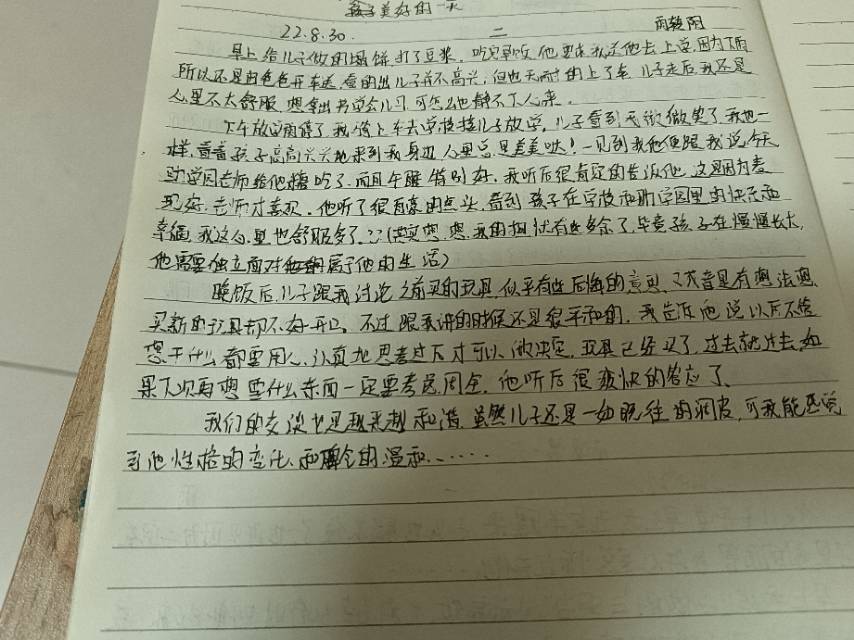 孩子美好的一天
22.8.30. 二 雨转阴
早上给儿子做的煸饼,打了豆浆,吃完早饭他要求我送他去上学,因为下雨
所以还是由爸爸开车送,看的出儿子并不高兴,但也无耐的上了车,儿子走后我还是
心里不太舒服,想拿出书学会儿习,可怎么也静不下心来。
下午放学雨停了,我骑上车去学校接儿子放学,儿子看到我微微笑了,我也一
样,看着孩子高高兴兴地来到我身边,心里总是美美哒!一见到我他便跟我说今天
助学园老师给他糖吃了,而且午睡特别好,我听后很肯定的告诉他,这是因为表
现好,老师才喜欢,他听了很自豪的点头,看到孩子在学校和助学园里的快乐和
幸福,我这心里也舒服多了,(其实想想,我的担忧有些多余了,毕竟孩子在慢慢长大,
他需要独立面对属于他的生活)
晚饭后,儿子跟我讨论之前买的玩具,似乎有些后悔的意思,又或者是有想法想
买新的玩具却不好开口。不过跟我讲的时候还是很平和的,我告诉他说以后不管
想干什么都要用心、认真地思考过后才可以做决定,玩具已经买了,过去就过去,如
果下次再想要什么东西一定要考虑周全,他听后很爽快的答应了。
我们的交谈也是越来越和谐,虽然儿子还是一如既往的调皮,可我能感觉
到他性格的变化、和的温和……